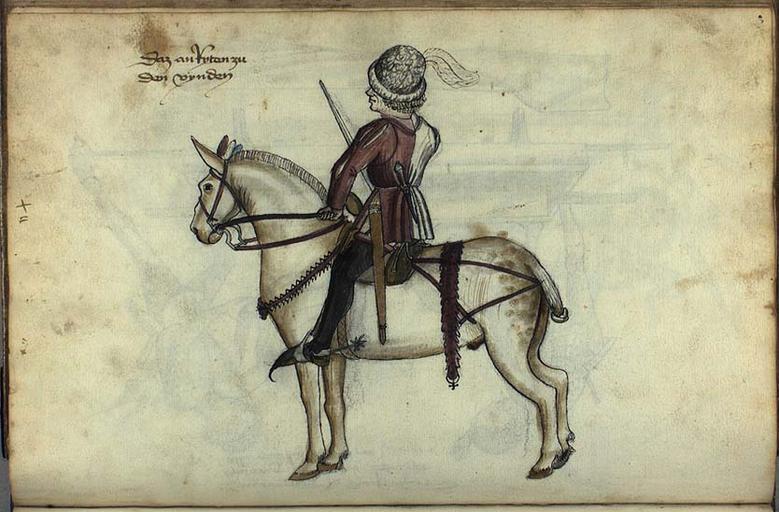 Daz an Ryten zu
den vynden